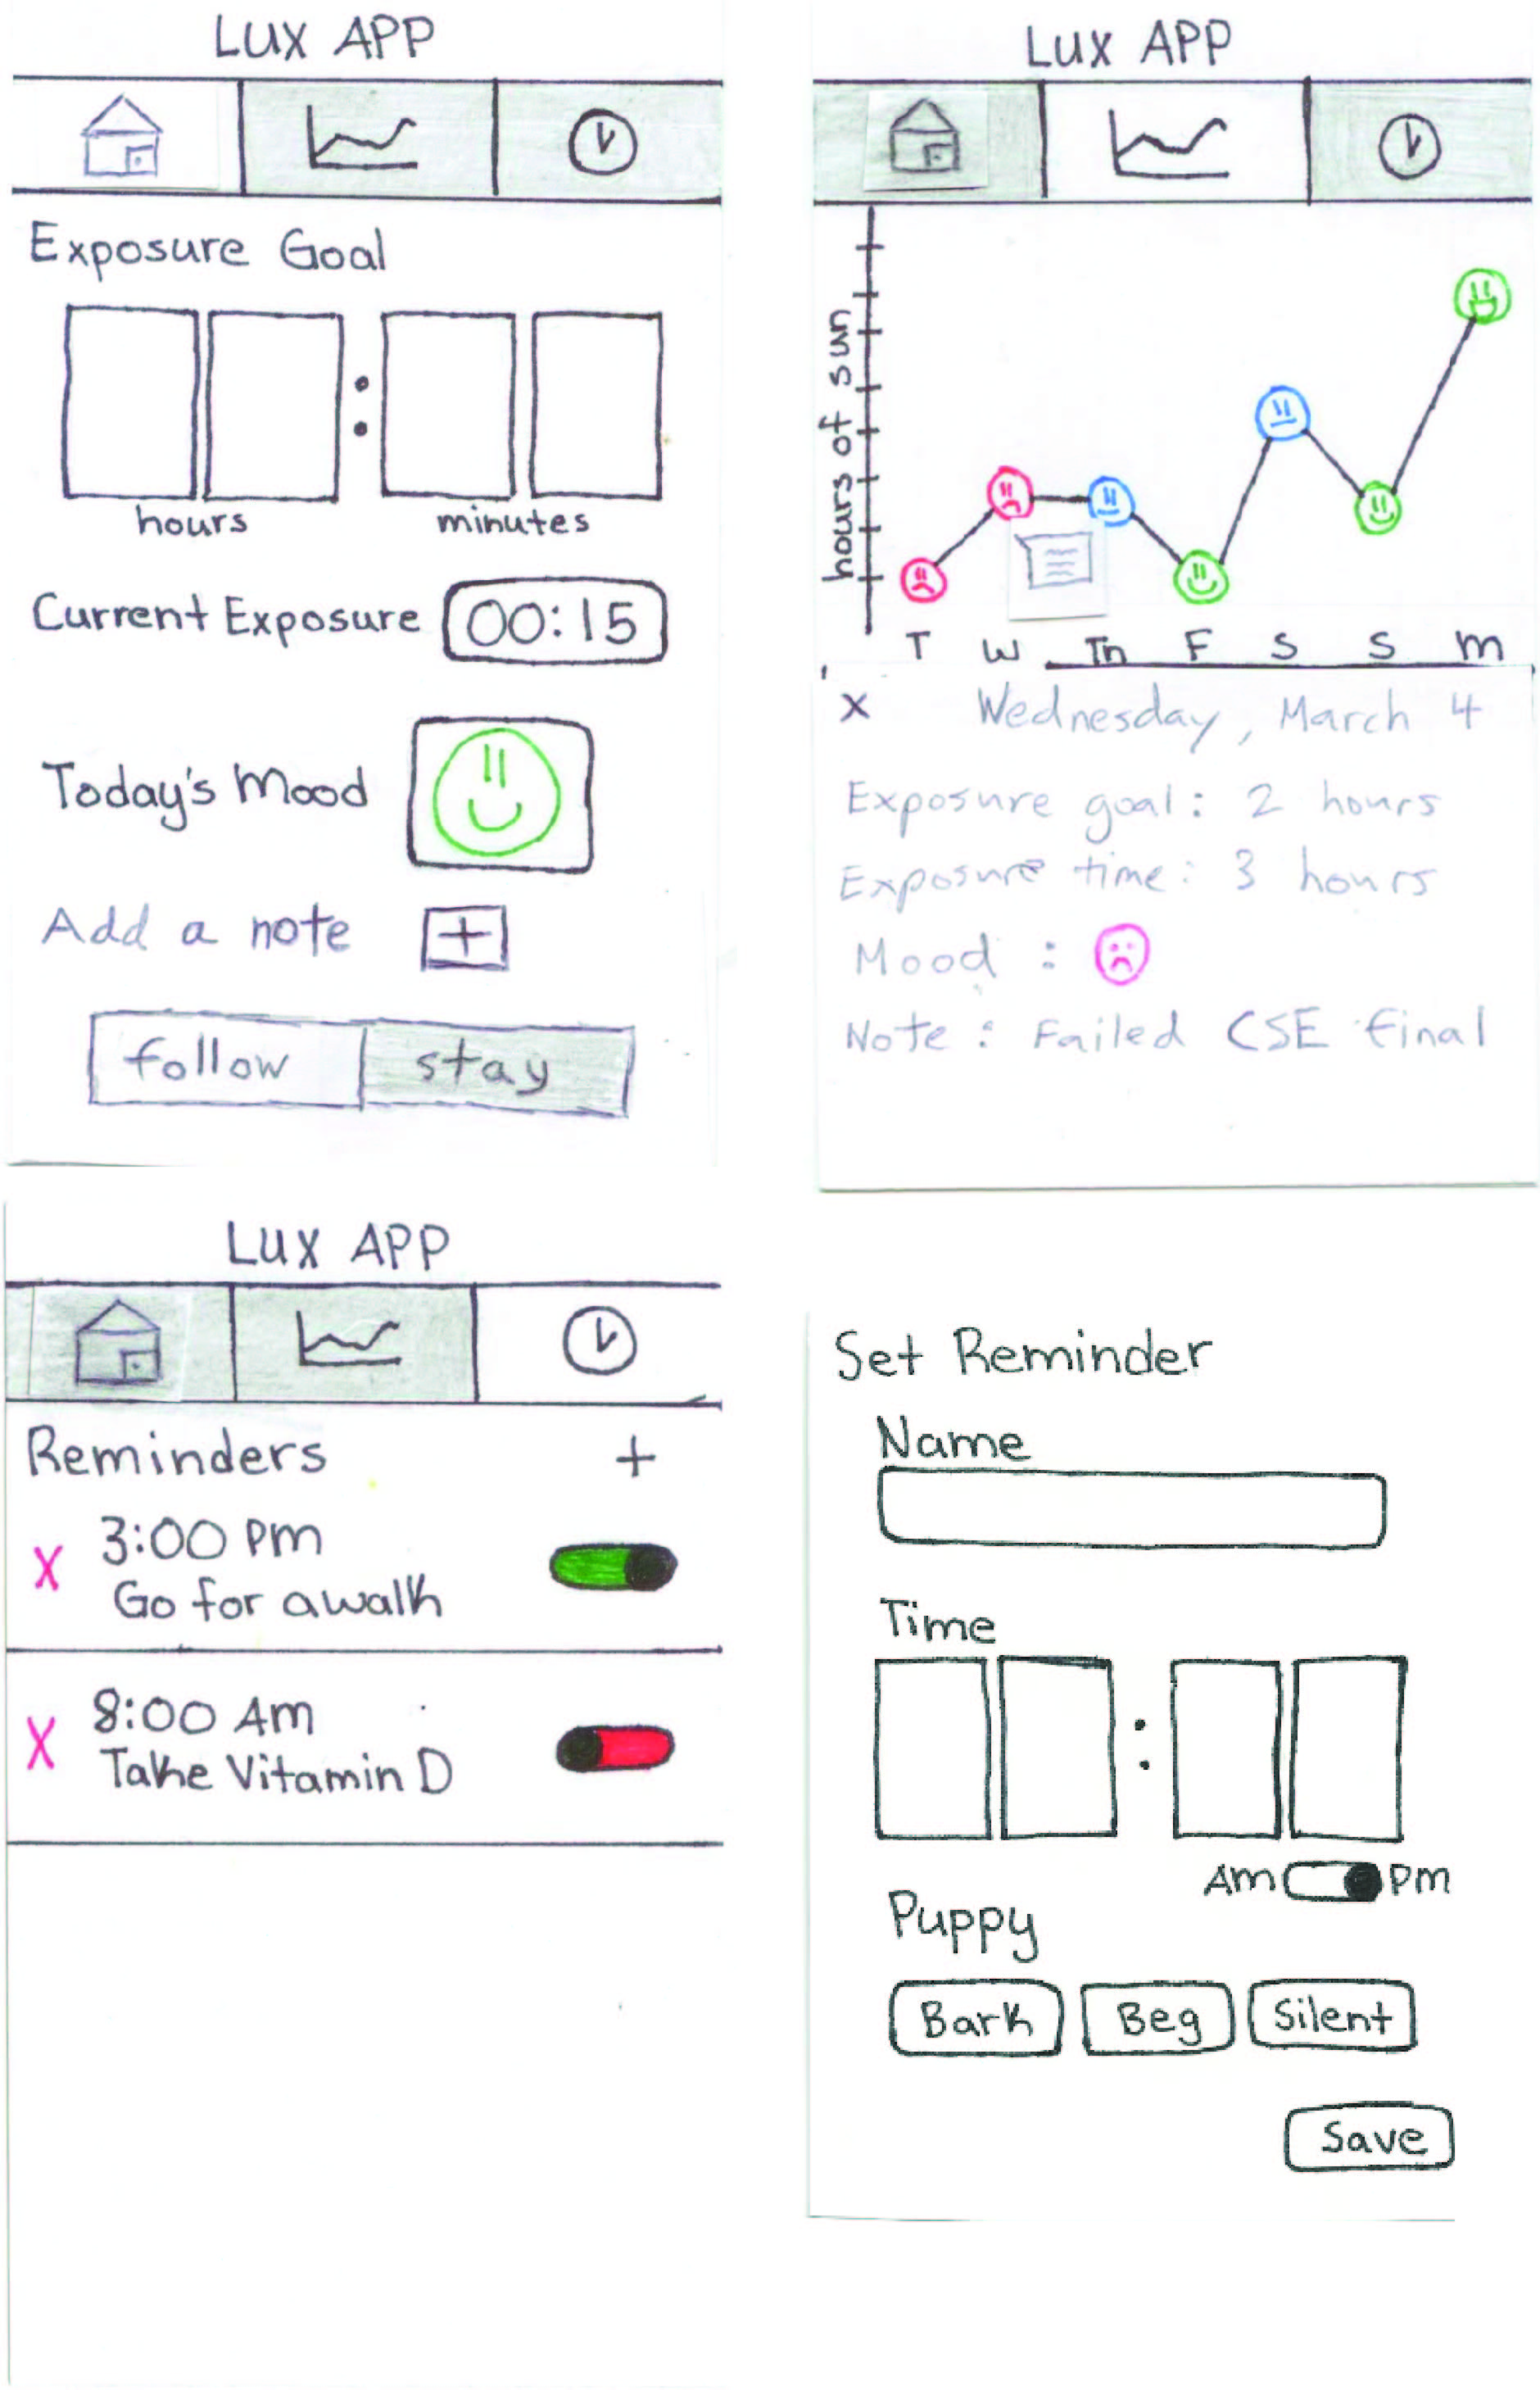 LUX APP
Exposure Goal
:
hours minutes
Current Exposure 00:15
Today's Mood
Add a note +
follow stay
LUX APP
hours of sun
T W Th F S S M
x Wednesday, March 4
Exposure goal: 2 hours
Exposure time: 3 hours
Mood :
Note : Failed CSE final
LUX APP
Reminders +
X 3:00 PM
Go for a walk
X 8:00 AM
Take Vitamin D
Set Reminder
Name
Time
:
AM PM
Puppy
Bark Beg Silent
Save